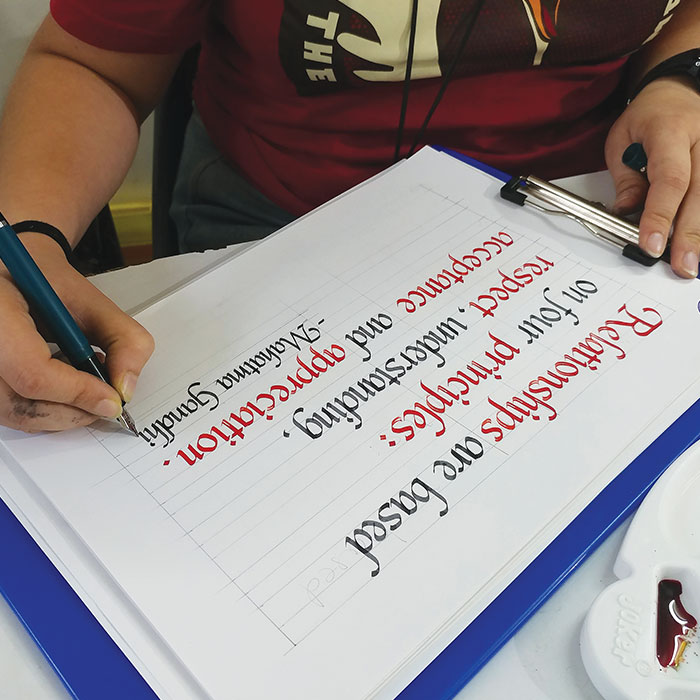 Relationships are based
on four principles:
respect, understanding,
acceptance and appreciation.
-Mahatma Gandhi
sed
THE
JOKER